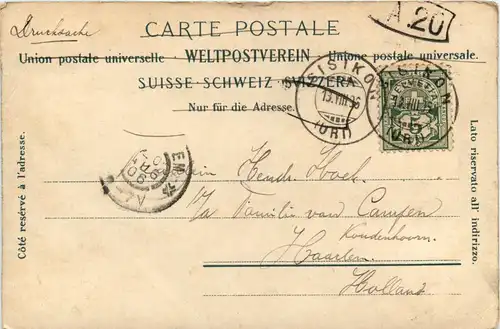 Drucksache
CARTE POSTALE
A.20
Union postale universelle WELTPOSTVEREIN Unione postale universale.
SUISSE SCHWEIZ SVIZZERA
Nur für die Adresse.
SISIKON
13.VIII
(URI)
SISIKON
13.VIII
(URI)
HELVETIA
5
Côté reservé à l'adresse.
Lato riservato all' indirizzo.
Familie van Campen
Koudenhoorn
Haarlem
Holland